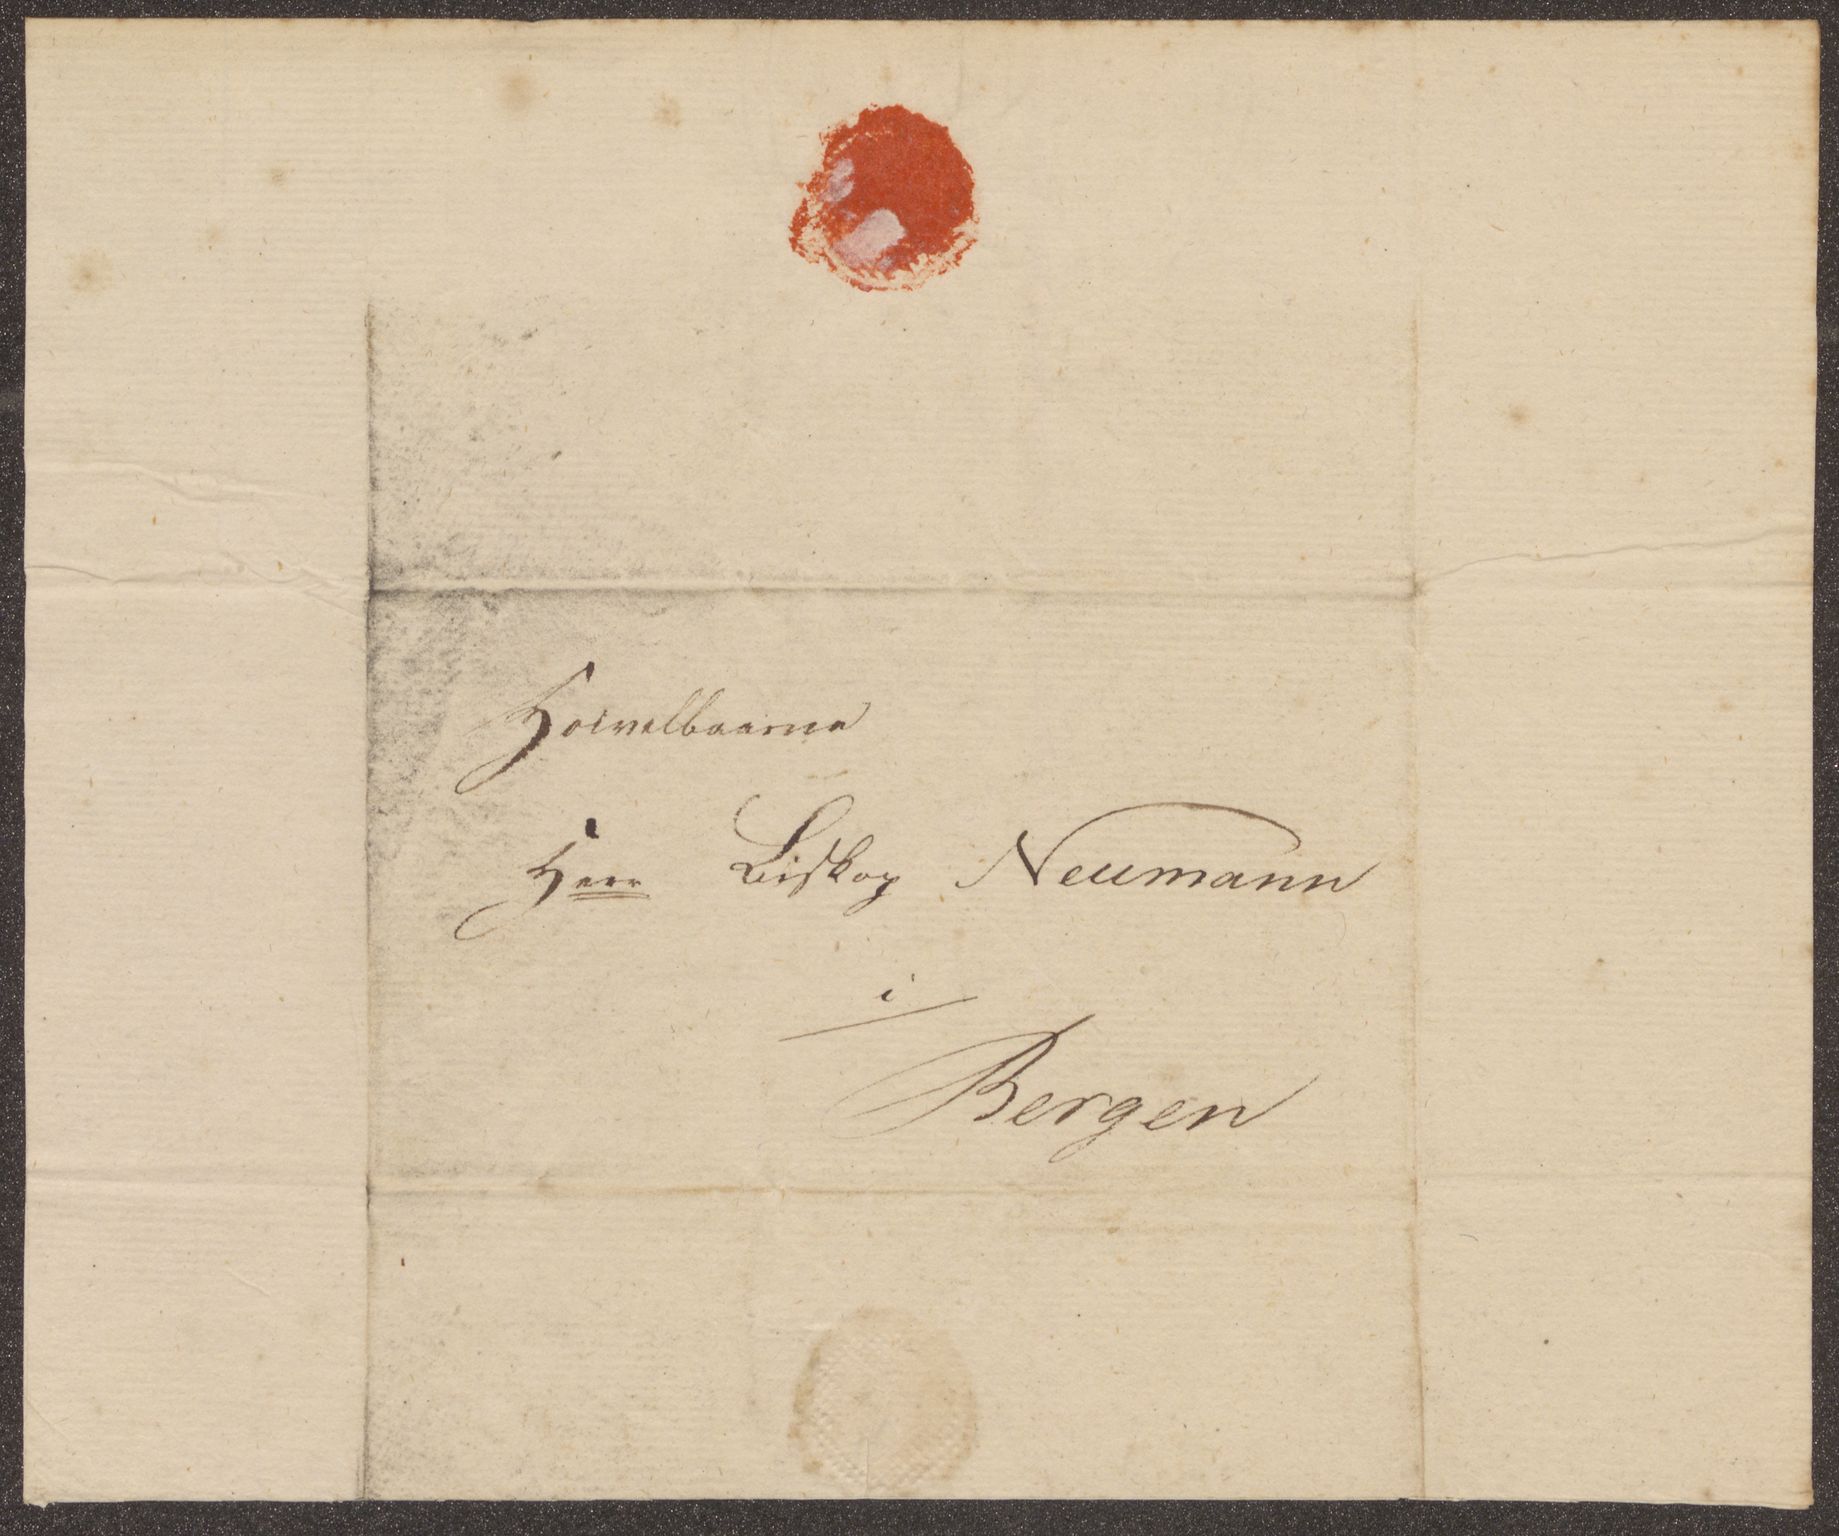 Høivelbaarne
Herr Biskop Neumann
i
Bergen